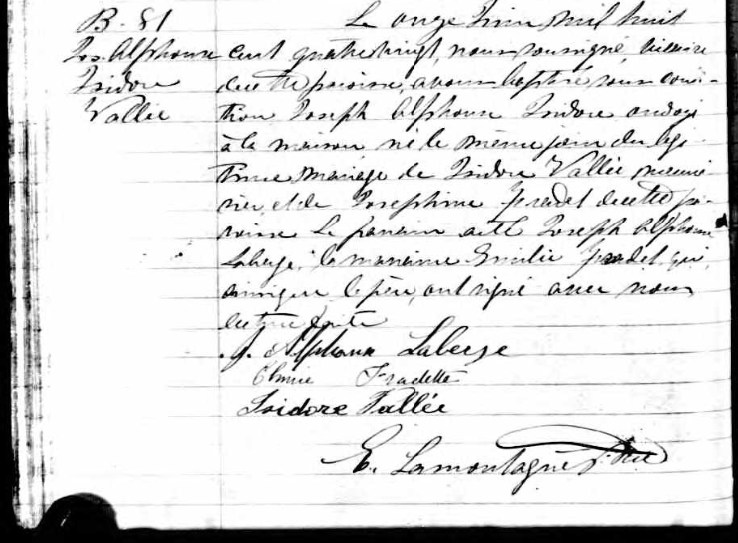 B. 81
Jos. Alphonse
Isidore
Vallée
Le onze Juin mil huit
cent quatre vingt, nous soussigné, vicaire
de cette paroisse, avons baptisé sous condi-
tion Joseph Alphonse Isidore ondoyé
à la maison né le même jour du légi-
time mariage de Isidore Vallée
et de Josephine Fradet de cette pa-
roisse Le parrain a été Joseph Alphonse
Laberge, la marraine Emilie Fradet qui,
ainsi que le père, ont signé avec nous
lecture faite
J. Alphonse Laberge
Fradette
Isidore Vallée
E. Lamontagne Ptre